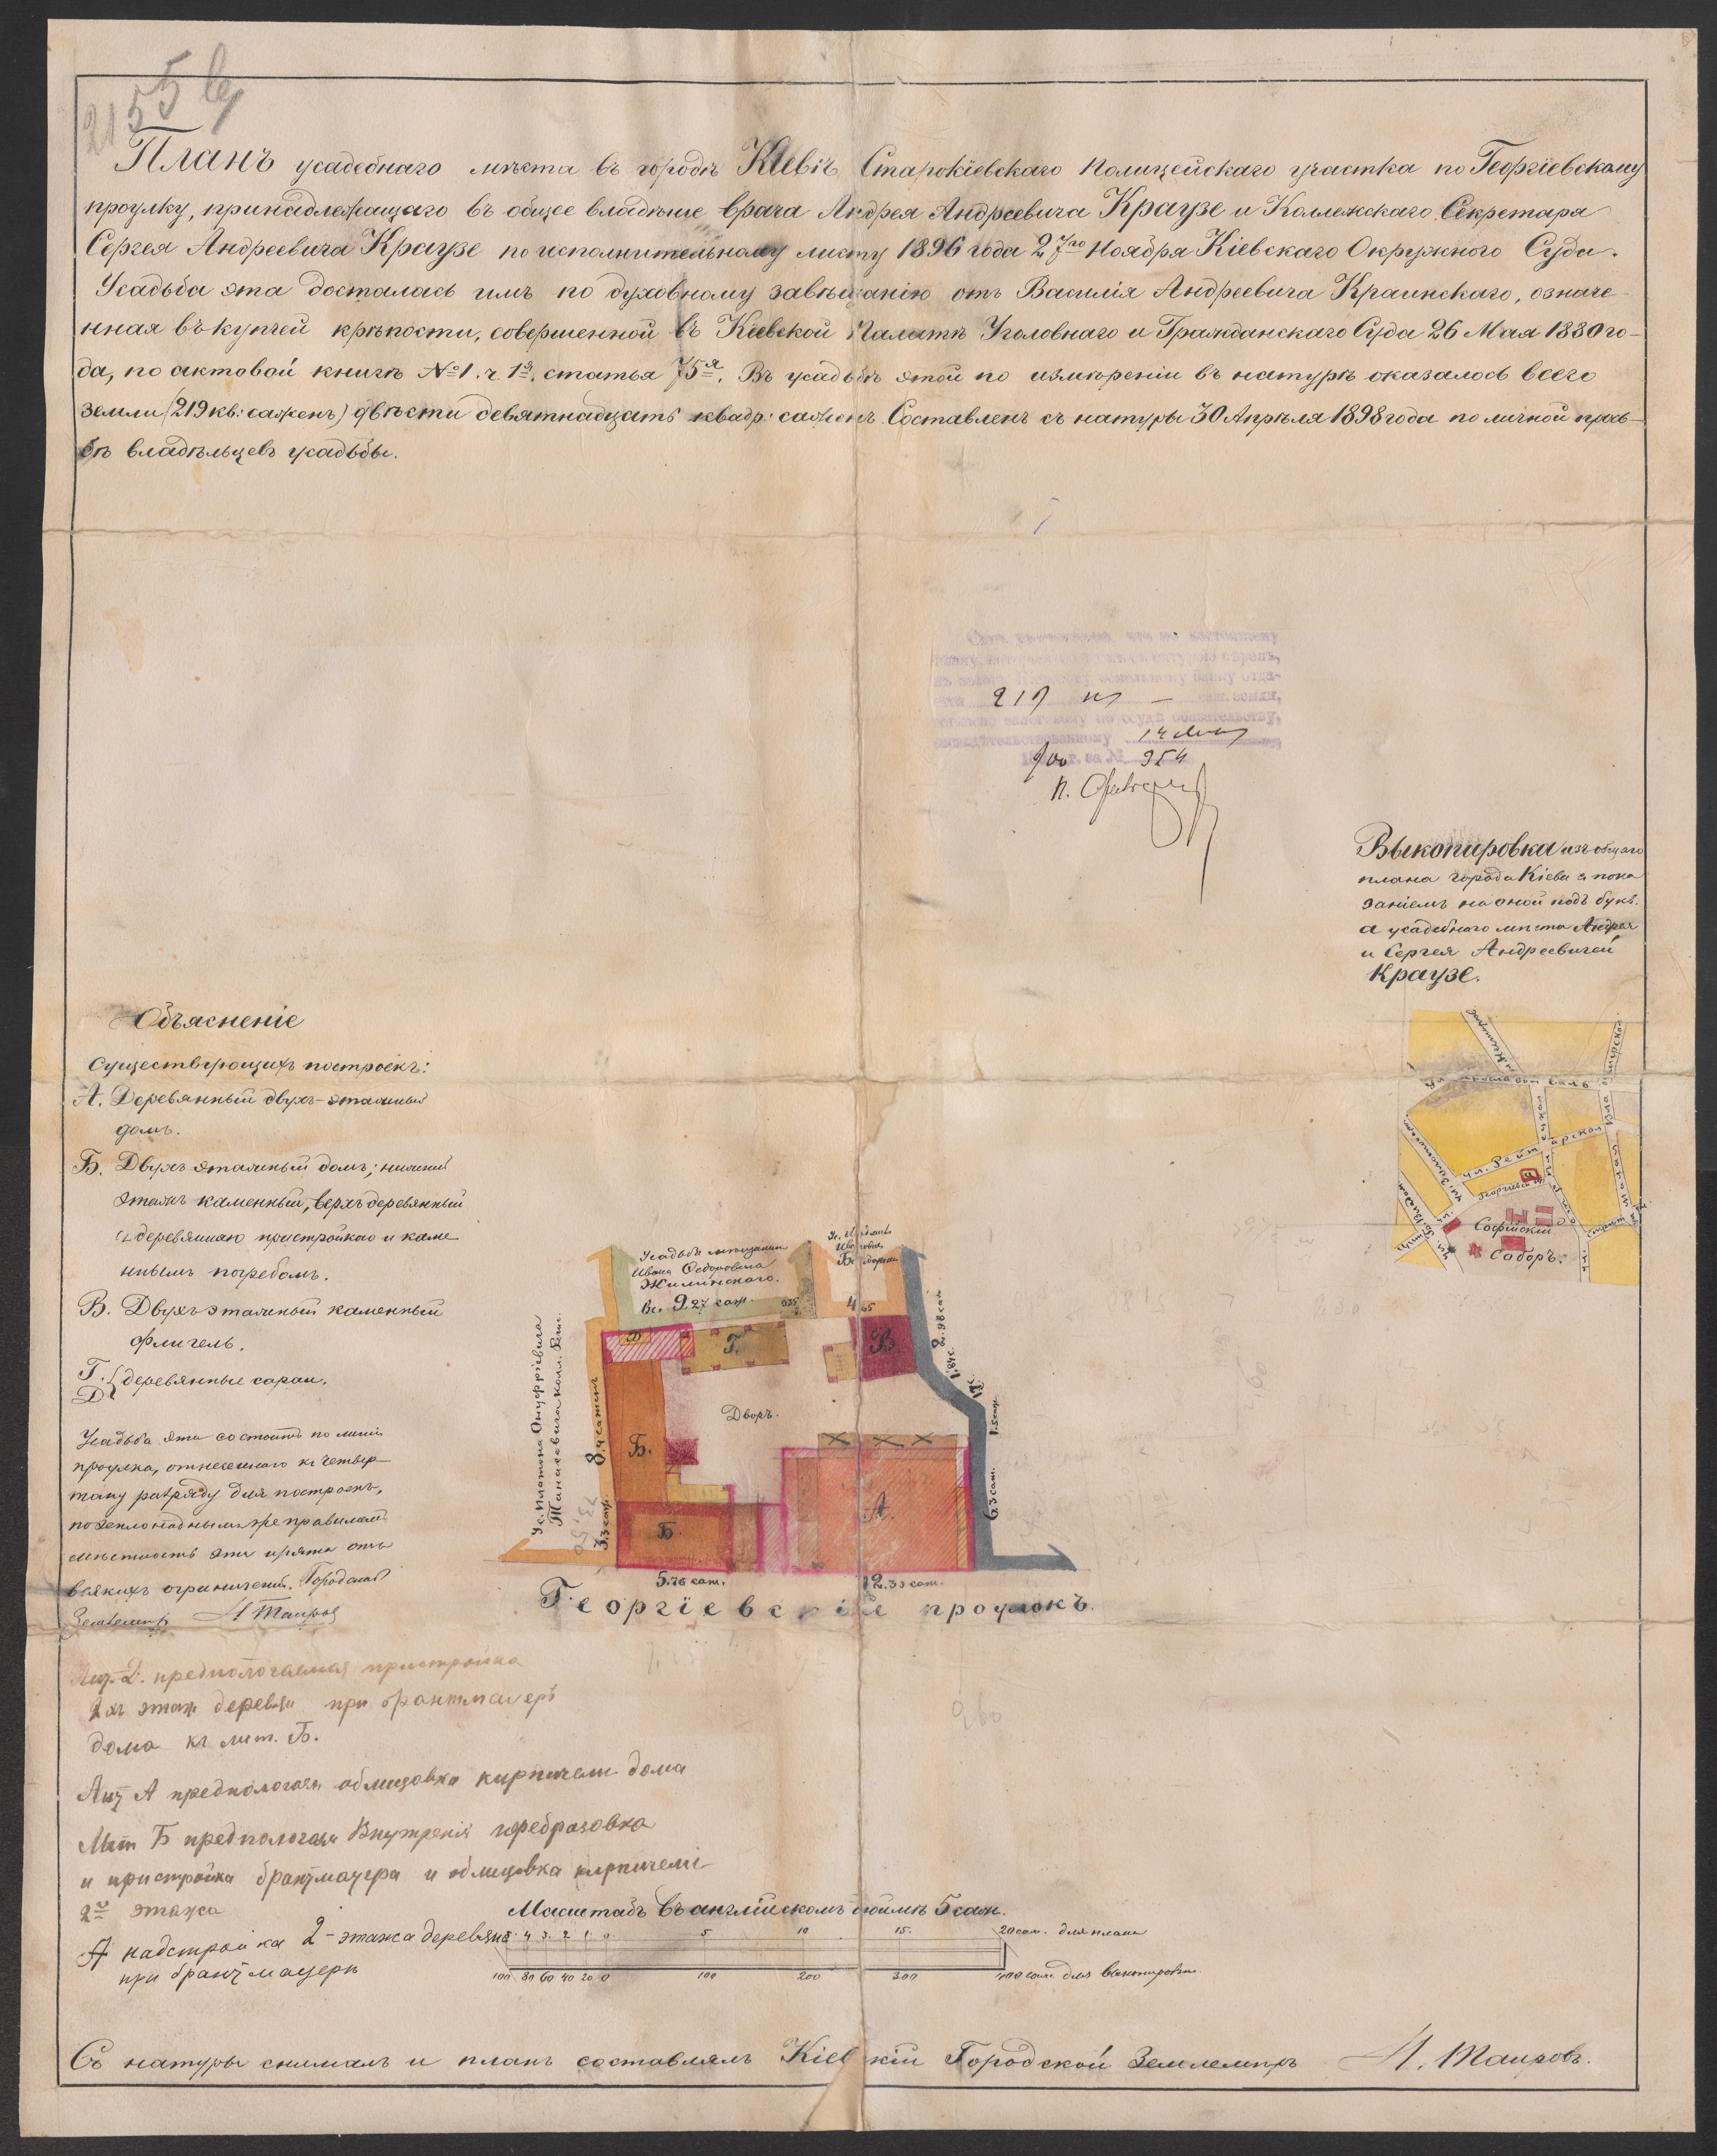 2155
Планъ усадебнаго мѣста въ городѣ Кіевѣ Старокіевскаго Полицейскаго участка по Георгіевскому
проулку, принадлежащаго въ общее владѣніе врача Андрея Андреевича Краузе и Коллежскаго Секретаря
Сергея Андреевича Краузе по исполнительному листу 1896 года 27го Ноября Кіевскаго Окружного Суда.
Усадьба эта досталась имъ по духовному завѣщанію отъ Василія Андреевича Краинскаго, означе-
нная въ купчей крѣпости, совершенной въ Кіевской Палатѣ Уголовнаго и Гражданскаго Суда 26 Мая 1880 го-
да, по актовой книгѣ №1. ч. 1я. статья 75я. Въ усадьбѣ этой по измѣреніи въ натурѣ оказалось всего
земли (219 кв: сажень) двѣсти девятнадцать квадр: сажень. Составленъ съ натуры 30 Апрѣля 1898 года по личной прось-
бѣ владѣльцевъ усадьбы.
219
14 мая
900 г. за № 954
Выкопировка изъ общаго
плана города Кіева съ пока
заніемъ на оной подъ букв.
а усадебнаго мѣста Андрея
и Сергея Андреевичей
Краузе.
ул. Рейтарская
Георгіевскій
Софійскій
Соборъ.
Объясненіе
существующихъ построекъ:
А. Деревянный двухъ-этажный
домъ.
Б. Двухъ этажный домъ; нижній
этажъ каменный, верхъ деревянный
съ деревянною пристройкою и каме
ннымъ погребомъ.
В. Двухъ этажный каменный
флигель.
Г. Д. деревянные сараи.
Усадьба эта состоитъ по линіи
проулка, отнесеннаго къ четвер-
тому разряду для построекъ,
мѣстность эта изъята отъ
всякихъ ограниченій. Городской
Землемѣръ А Таировъ
Усадьба мѣщанина
Ивана Ѳедоровича
Жилинскаго.
Вс. 9,27 саж.
0.35
4,65
Ус. Платона Онуфріевича
Танасевича
8,4 сажень
3,3 саж.
2.98 саж.
1,84 с.
1.5 саж.
6,3 саж.
Д
Г.
В.
Дворъ.
Б.
А.
Б.
5.76 саж.
12.33 саж.
Георгіевскій проулокъ.
Лит. Д. предпологаемая пристройка
2хъ этаж деревян при брантмауерѣ
дома къ лит. Б.
Лит А предпологаем облицовка кирпичем дома
Лит Б предпологаем Внутренія переобразовка
и пристройка брантмауера и облицовка кирпичемъ
2го этажа
А надстройка 2-этажа деревяна
при брантмауерѣ
Масштабъ въ англійскомъ дюймѣ 5 саж.
5. 4 3. 2 1. 0. 5 10 15. 20 саж. для плана
100 80 60 40 20 0 100 200 300 400 саж. для выкопировки.
Съ натуры снималъ и планъ составлялъ Кіевскій Городской Землемѣръ А. Таировъ.